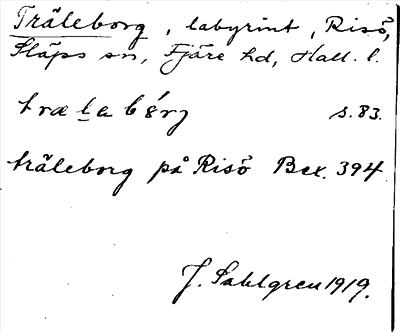 Träleborg, labyrint, Risö,
Släps sn, Fjäre hd, Hall. l.
træ la børj s. 83.
träleborg på Risö Bex. 394
J. Sahlgren 1919.